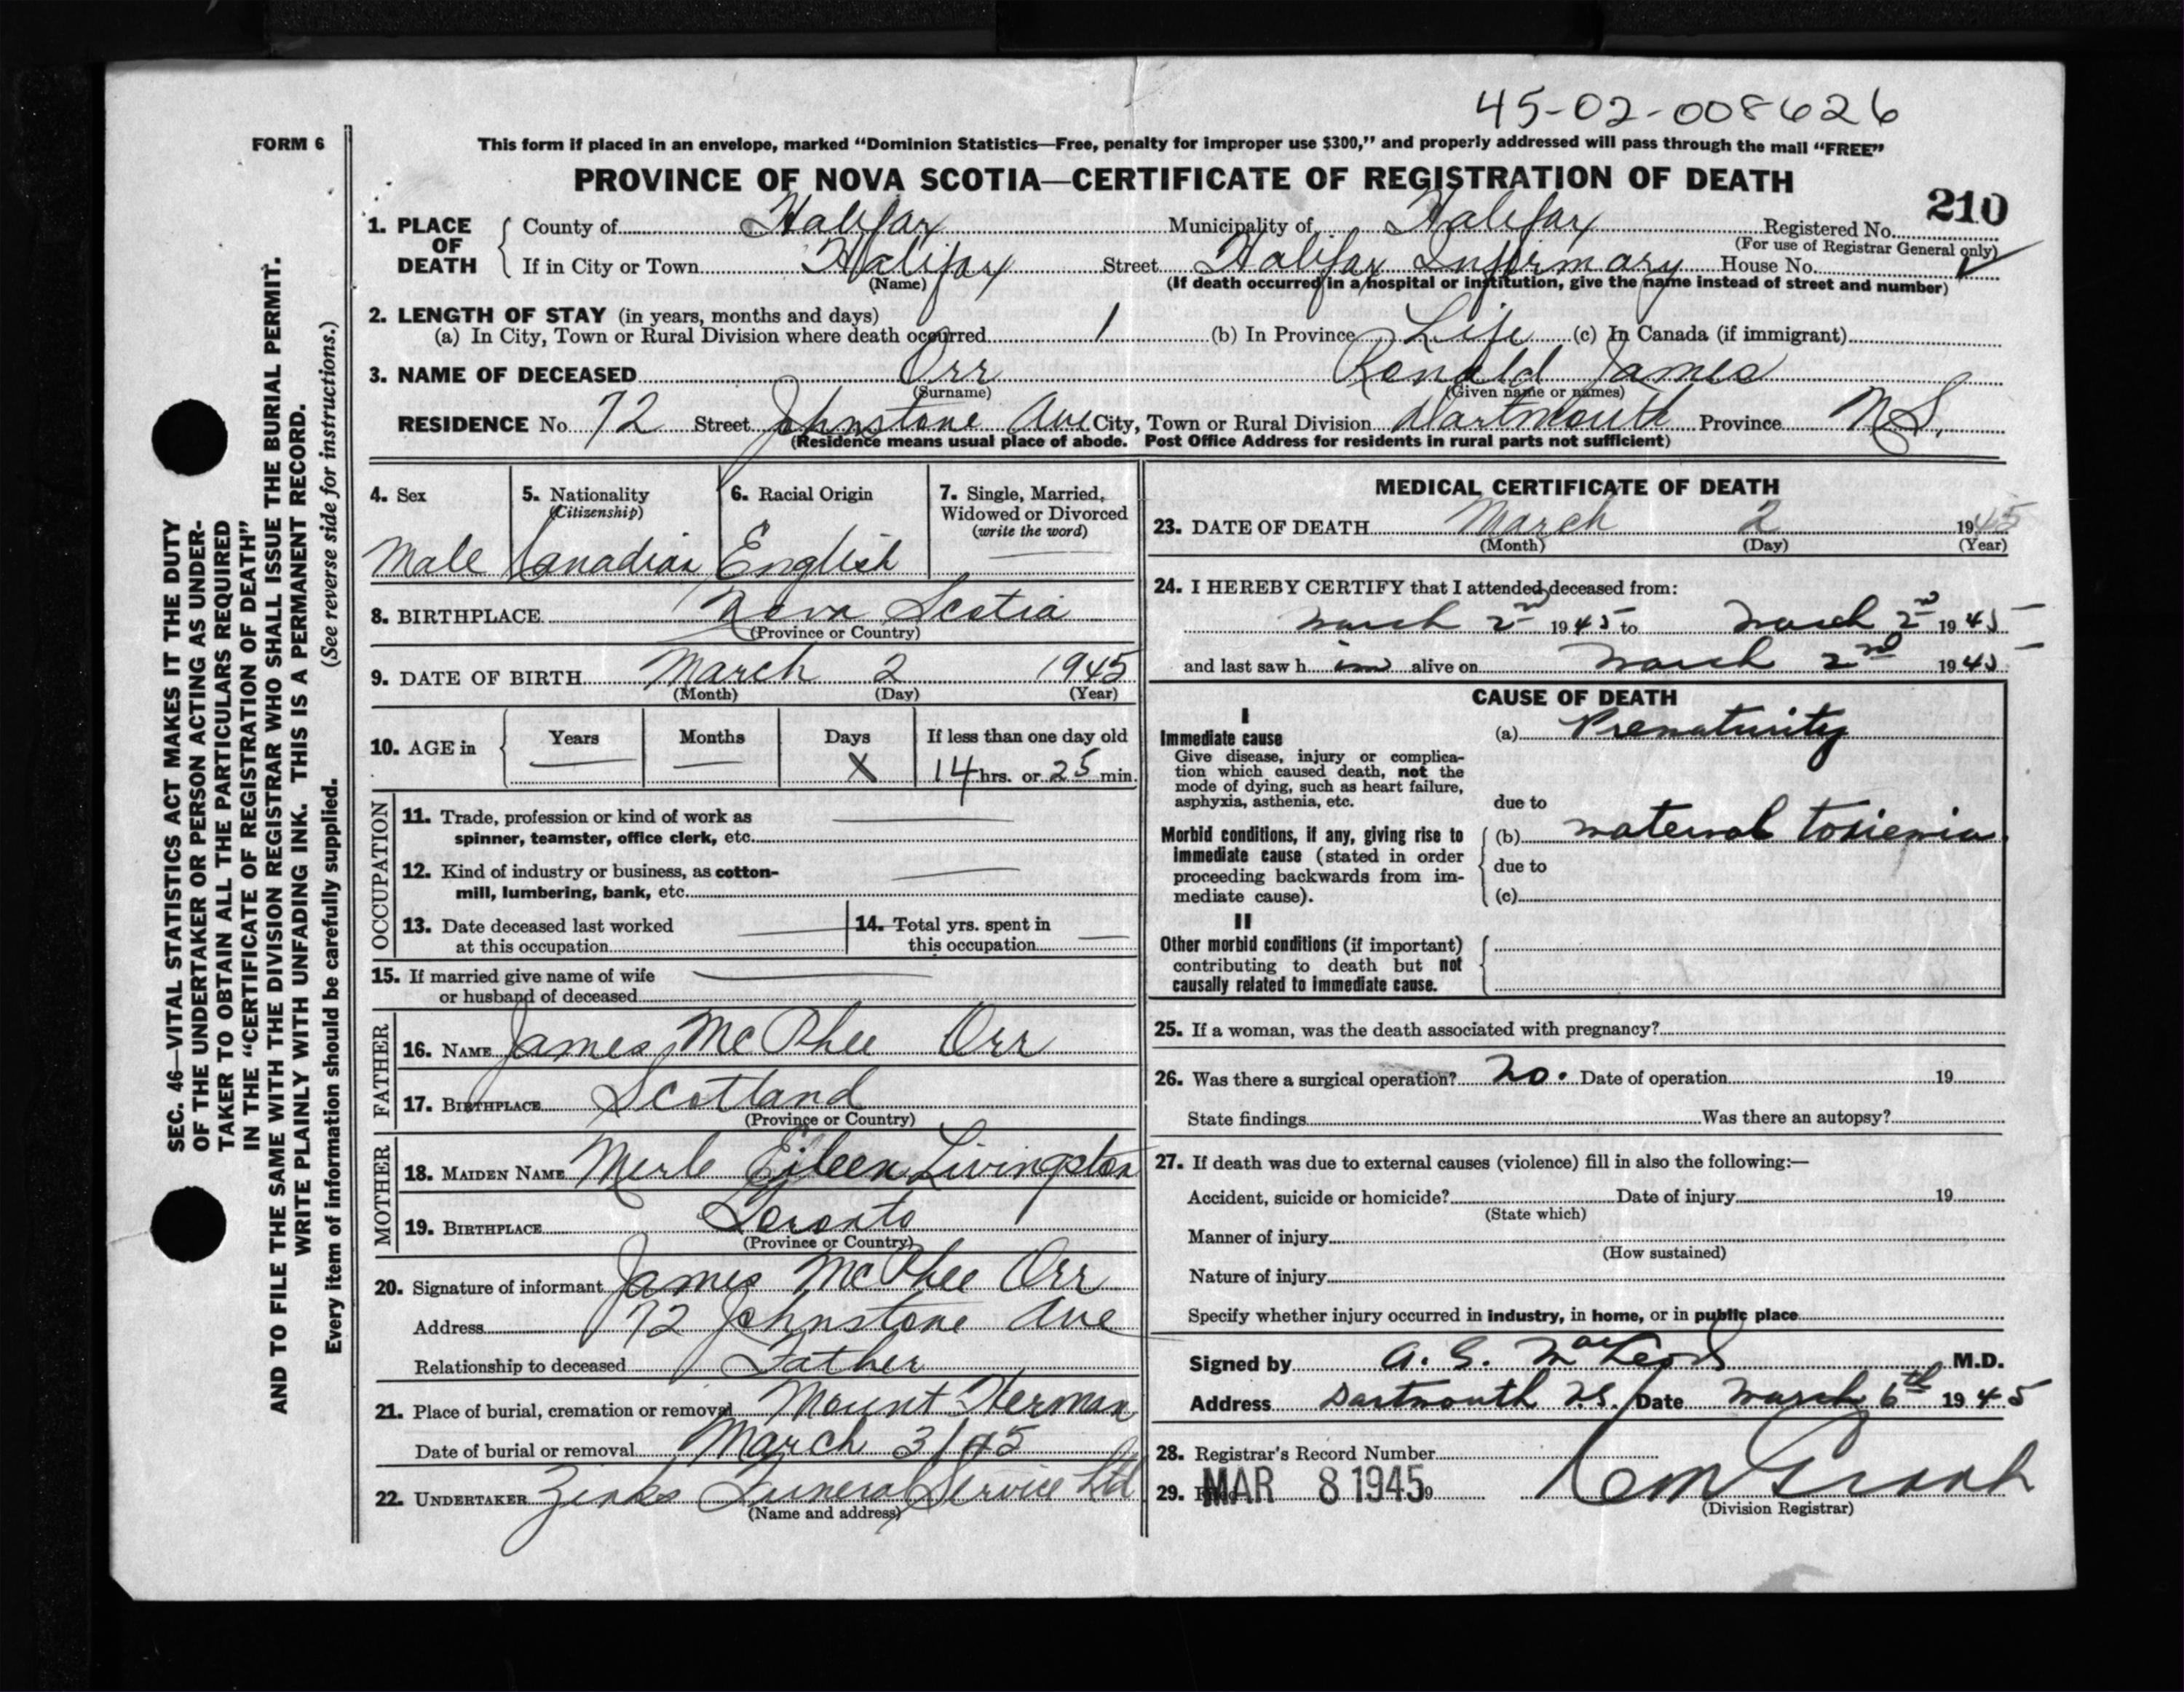 45-02-008626
FORM 6
This form if placed in an envelope, marked “Dominion Statistics—Free, penalty for improper use $300,” and properly addressed will pass through the mail “FREE”
PROVINCE OF NOVA SCOTIA—CERTIFICATE OF REGISTRATION OF DEATH
210
1. PLACE OF DEATH
County of Halifax Municipality of Halifax Registered No.
(For use of Registrar General only)
If in City or Town Halifax Street Halifax Infirmary House No.
(Name) (If death occurred in a hospital or institution, give the name instead of street and number)
2. LENGTH OF STAY (in years, months and days)
(a) In City, Town or Rural Division where death occurred 1 (b) In Province Life (c) In Canada (if immigrant)
3. NAME OF DECEASED Orr Ronald James
(Surname) (Given name or names)
RESIDENCE No. 72 Street Johnstone Ave City, Town or Rural Division Dartmouth Province N.S.
(Residence means usual place of abode. Post Office Address for residents in rural parts not sufficient)
SEC. 46—VITAL STATISTICS ACT MAKES IT THE DUTY
OF THE UNDERTAKER OR PERSON ACTING AS UNDER-
TAKER TO OBTAIN ALL THE PARTICULARS REQUIRED
IN THE “CERTIFICATE OF REGISTRATION OF DEATH”
AND TO FILE THE SAME WITH THE DIVISION REGISTRAR WHO SHALL ISSUE THE BURIAL PERMIT.
WRITE PLAINLY WITH UNFADING INK. THIS IS A PERMANENT RECORD.
Every item of information should be carefully supplied. (See reverse side for instructions.)
4. Sex
Male
5. Nationality
(Citizenship)
Canadian
6. Racial Origin
English
7. Single, Married,
Widowed or Divorced
(write the word)
8. BIRTHPLACE Nova Scotia
(Province or Country)
9. DATE OF BIRTH March 2 1945
(Month) (Day) (Year)
10. AGE in
Years Months Days If less than one day old
X 14 hrs. or 25 min.
OCCUPATION
11. Trade, profession or kind of work as
spinner, teamster, office clerk, etc.
12. Kind of industry or business, as cotton-
mill, lumbering, bank, etc.
13. Date deceased last worked
at this occupation
14. Total yrs. spent in
this occupation
15. If married give name of wife
or husband of deceased
FATHER
16. NAME James McPhee Orr
17. BIRTHPLACE Scotland
(Province or Country)
MOTHER
18. MAIDEN NAME Merle Eileen Livingston
19. BIRTHPLACE Toronto
(Province or Country)
20. Signature of informant James McPhee Orr
Address 72 Johnstone Ave
Relationship to deceased Father
21. Place of burial, cremation or removal Mount Herman
Date of burial or removal March 3/45
22. UNDERTAKER Zinks Funeral Service Ltd
(Name and address)
MEDICAL CERTIFICATE OF DEATH
23. DATE OF DEATH March 2 1945
(Month) (Day) (Year)
24. I HEREBY CERTIFY that I attended deceased from:
March 2nd 1945 to March 2nd 1945
and last saw him alive on March 2nd 1945
CAUSE OF DEATH
I
Immediate cause
Give disease, injury or complica-
tion which caused death, not the
mode of dying, such as heart failure,
asphyxia, asthenia, etc.
(a) Prematurity
due to
Morbid conditions, if any, giving rise to
immediate cause (stated in order
proceeding backwards from im-
mediate cause).
(b) maternal toxemia
due to
(c)
II
Other morbid conditions (if important)
contributing to death but not
causally related to immediate cause.
25. If a woman, was the death associated with pregnancy?
26. Was there a surgical operation? No. Date of operation 19
State findings Was there an autopsy?
27. If death was due to external causes (violence) fill in also the following:—
Accident, suicide or homicide? Date of injury 19
(State which)
Manner of injury
(How sustained)
Nature of injury
Specify whether injury occurred in industry, in home, or in public place
Signed by A. G. MacLeod M.D.
Address Dartmouth N.S. Date March 6th 1945
28. Registrar's Record Number
29. MAR 8 1945
(Division Registrar)